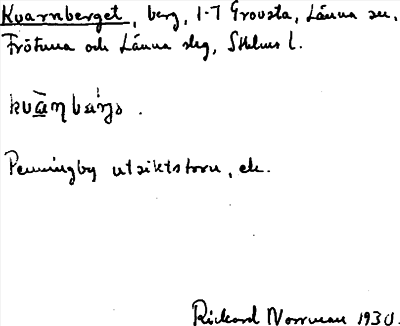 Kvarnberget, berg, 1-7 Grovsta, Länna sn.
Frötuna och Länna slg, Sthlms l.
kvàn̥bær̀jə .
Penningby utsiktstorn, ek.
Rickard Norrman 1930.